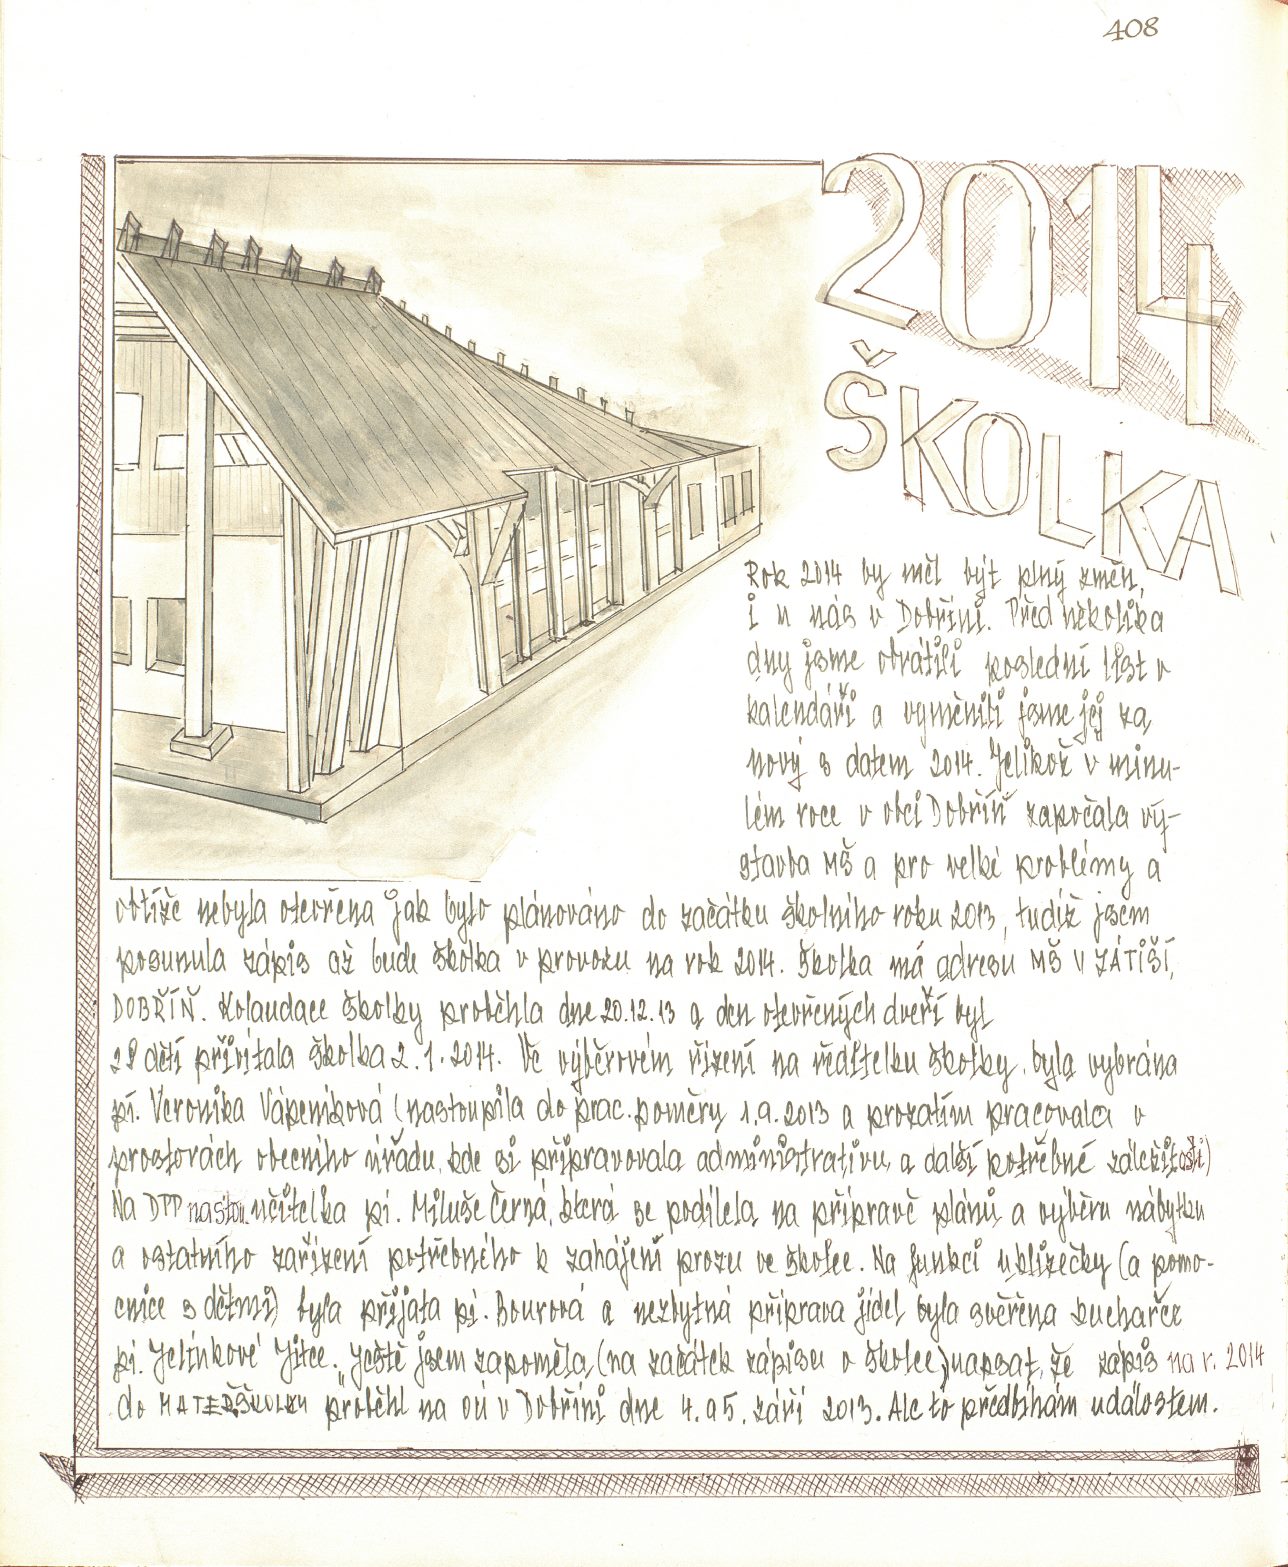 408
2014
ŠKOLKA
Rok 2014 by měl být plný změn,
i u nás v Dobříni. Před několika
dny jsme obrátili poslední list v
kalendáři a vyměnili jsme jej za
nový s datem 2014. Jelikož v minu-
lém roce v obci Dobříň započala vý-
stavba MŠ a pro velké problémy a
obtíže nebyla otevřena jak bylo plánováno do začátku školního roku 2013, tudíž jsem
posunula zápis až bude školka v provozu na rok 2014. Školka má adresu MŠ V ZÁTIŠÍ,
DOBŘÍŇ. Kolaudace školky proběhla dne 20.12.13 a den otevřených dveří byl
28 dětí přivítala školka 2.1.2014. Ve výběrovém řízení na ředitelku školky, byla vybrána
pí. Veronika Vápeníková (nastoupila do prac. poměru 1.9.2013 a prozatím pracovala v
prostorách obecního úřadu, kde si připravovala administrativu a další potřebné záležitosti)
Na DPP nastou. učitelka pí. Miluše Černá, která se podílela na přípravě plánů a výběru nábytku
a ostatního zařízení potřebného k zahájení prozu ve školce. Na funkci uklízečky (a pomo-
cnice s dětmi) byla přijata pí. Bourová a nezbytná příprava jídel byla svěřena kuchařce
pí. Jelínkové Jitce. „Ještě jsem zapoměla (na začátek zápisu o školce) napsat, že zápis na r. 2014
do MATEŘ.ŠKOLKY proběhl na OÚ v Dobříni dne 4. a 5. září 2013. Ale to předbíhám událostem.